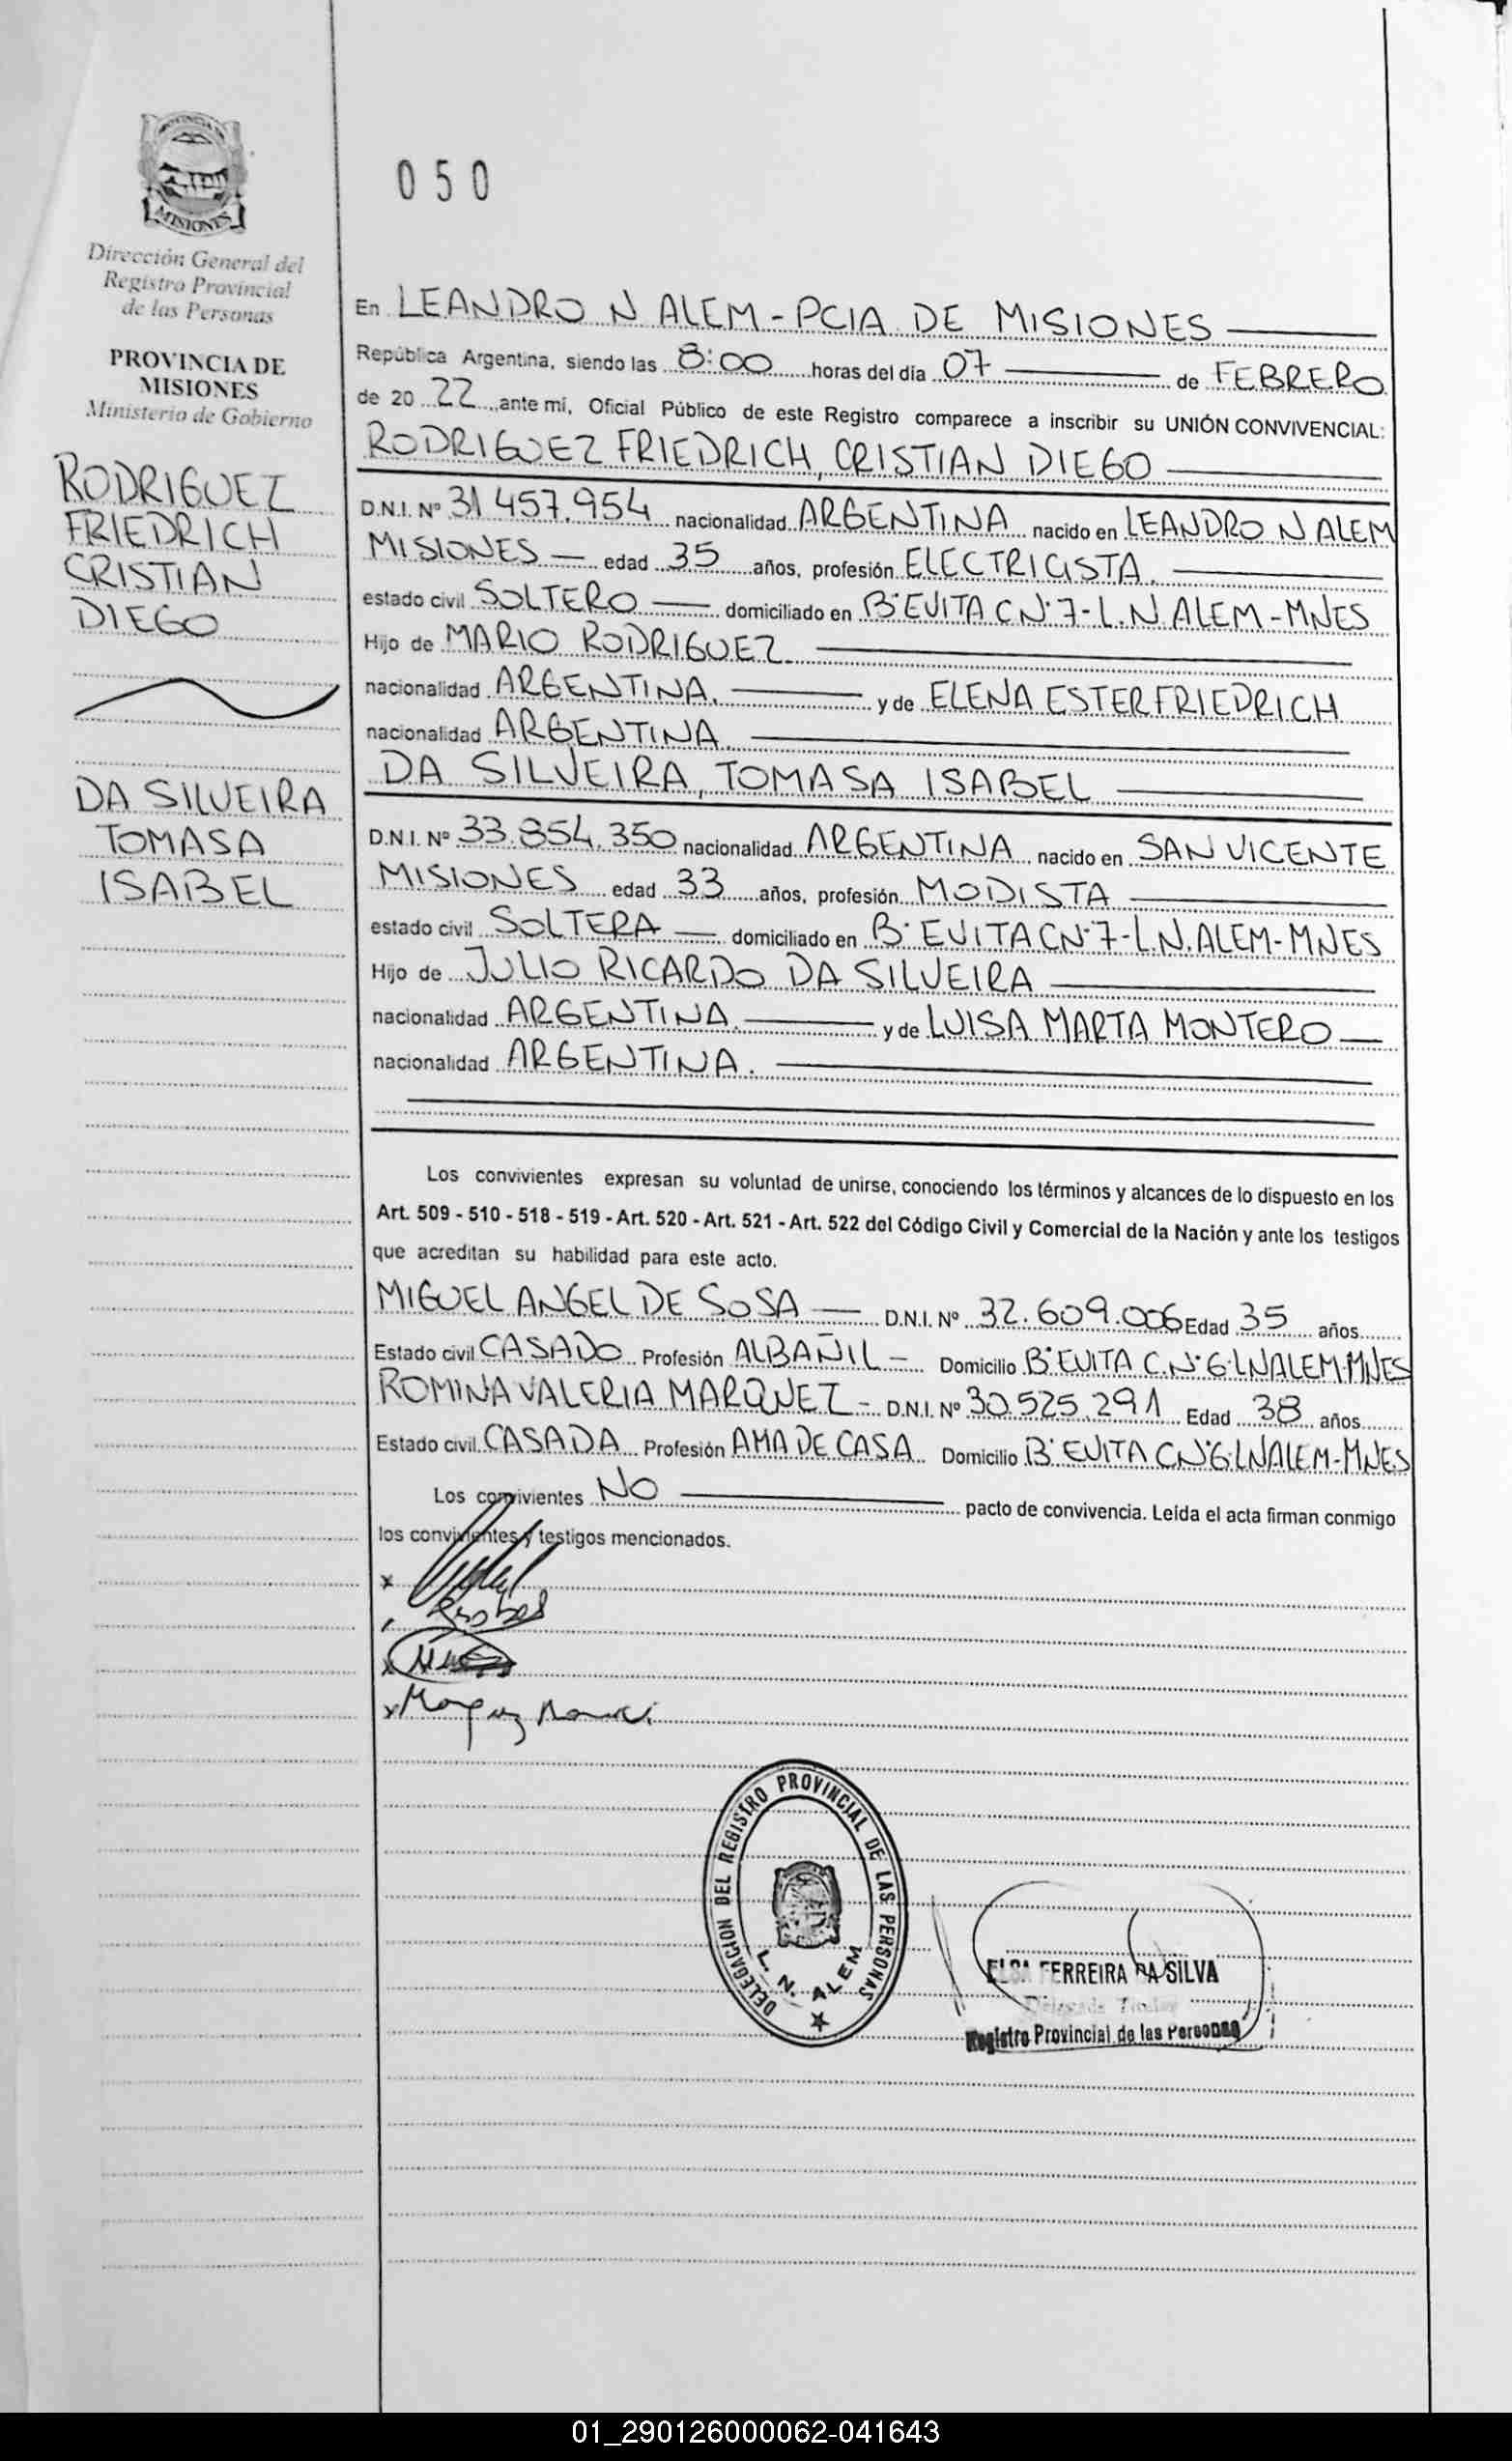 PROVINCIA DE
MISIONES
Dirección General del
Registro Provincial
de las Personas
PROVINCIA DE
MISIONES
Ministerio de Gobierno
RODRIGUEZ
FRIEDRICH
CRISTIAN
DIEGO
DA SILVEIRA
TOMASA
ISABEL
050
En LEANDRO N ALEM - PCIA DE MISIONES
República Argentina, siendo las 8:00 horas del día 07 de FEBRERO
de 20 22 ante mí, Oficial Público de este Registro comparece a inscribir su UNIÓN CONVIVENCIAL:
RODRIGUEZ FRIEDRICH, CRISTIAN DIEGO
D.N.I. Nº 31 457.954 nacionalidad ARGENTINA nacido en LEANDRO N ALEM
MISIONES — edad 35 años, profesión ELECTRICISTA.
estado civil SOLTERO — domiciliado en B· EVITA C N· 7 - L.N. ALEM - MNES
Hijo de MARIO RODRIGUEZ.
nacionalidad ARGENTINA. y de ELENA ESTER FRIEDRICH
nacionalidad ARGENTINA.
DA SILVEIRA, TOMASA ISABEL
D.N.I. Nº 33.854.350 nacionalidad ARGENTINA nacido en SAN VICENTE
MISIONES edad 33 años, profesión MODISTA
estado civil SOLTERA — domiciliado en B· EVITA C N· 7 - L.N. ALEM - MNES
Hijo de JULIO RICARDO DA SILVEIRA
nacionalidad ARGENTINA. y de LUISA MARTA MONTERO —
nacionalidad ARGENTINA.
Los convivientes expresan su voluntad de unirse, conociendo los términos y alcances de lo dispuesto en los
Art. 509 - 510 - 518 - 519 - Art. 520 - Art. 521 - Art. 522 del Código Civil y Comercial de la Nación y ante los testigos
que acreditan su habilidad para este acto.
MIGUEL ANGEL DE SOSA — D.N.I. Nº 32.609.006 Edad 35 años
Estado civil CASADO Profesión ALBAÑIL - Domicilio B· EVITA C.N· 6·LNALEM-MNES
ROMINA VALERIA MARQUEZ - D.N.I. Nº 30.525.291 Edad 38 años
Estado civil CASADA Profesión AMA DE CASA Domicilio B· EVITA C N· 6·LNALEM-MNES
Los convivientes NO pacto de convivencia. Leída el acta firman conmigo
los convivientes y testigos mencionados.
x
x
x Marquez
DELEGACION DEL REGISTRO PROVINCIAL DE LAS PERSONAS
L. N. ALEM
ELSA FERREIRA DA SILVA
Registro Provincial de las Personas
01_290126000062-041643